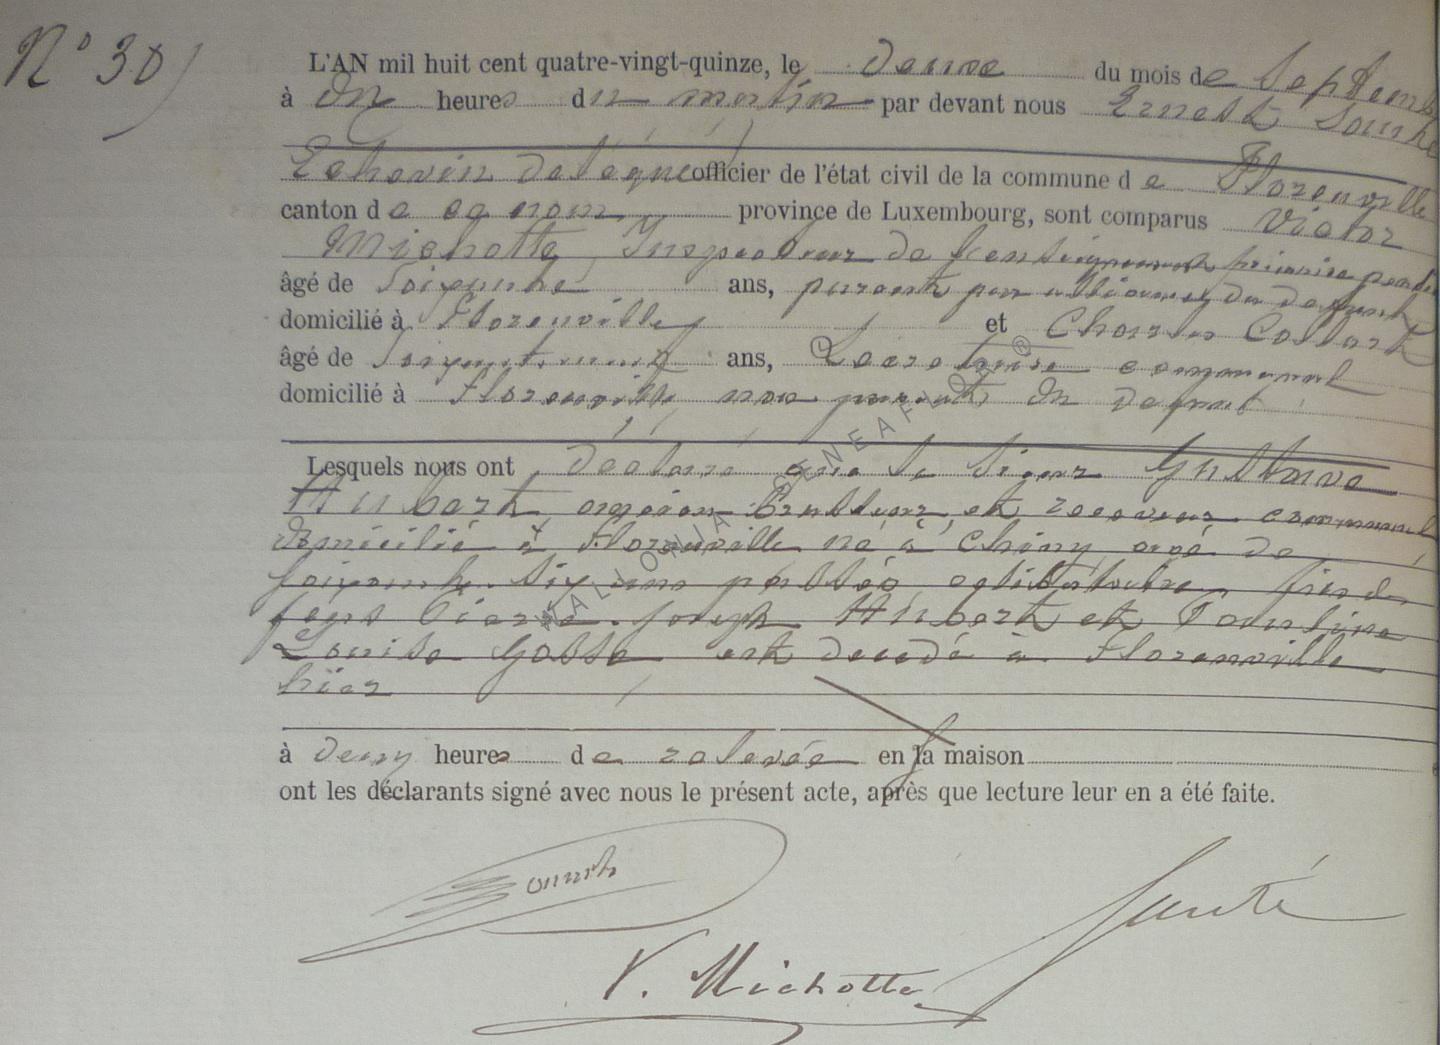 N° 30
L'AN mil huit cent quatre-vingt-quinze, le douze du mois de Septembre
à dix heures du matin par devant nous Ernest
Echevin délégué officier de l'état civil de la commune de Florenville
canton de ce nom province de Luxembourg, sont comparus Victor
Michotte, Inspecteur de l'enseignement primaire
âgé de Soixante ans, parent par alliance du défunt
domicilié à Florenville et Charles
âgé de ans, Secrétaire communal
domicilié à Florenville non parent du défunt
Lesquels nous ont déclaré que le sieur Gustave
Hubert, ancien et receveur communal
domicilié à Florenville né à Chiny âgé de
soixante-six ans passés célibataire fils de
feus Pierre-Joseph Hubert et Pauline
Louise Gosse est décédé à Florenville
hier
à deux heures de relevée en sa maison
ont les déclarants signé avec nous le présent acte, après que lecture leur en a été faite.
V. Michotte
WALLONIA GENEAFLOR ®